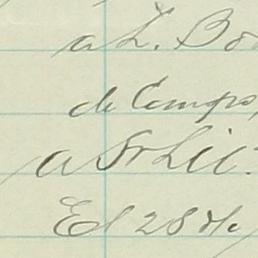 a L. Bo
de Campo,
a Sr Lic.
El 28 de